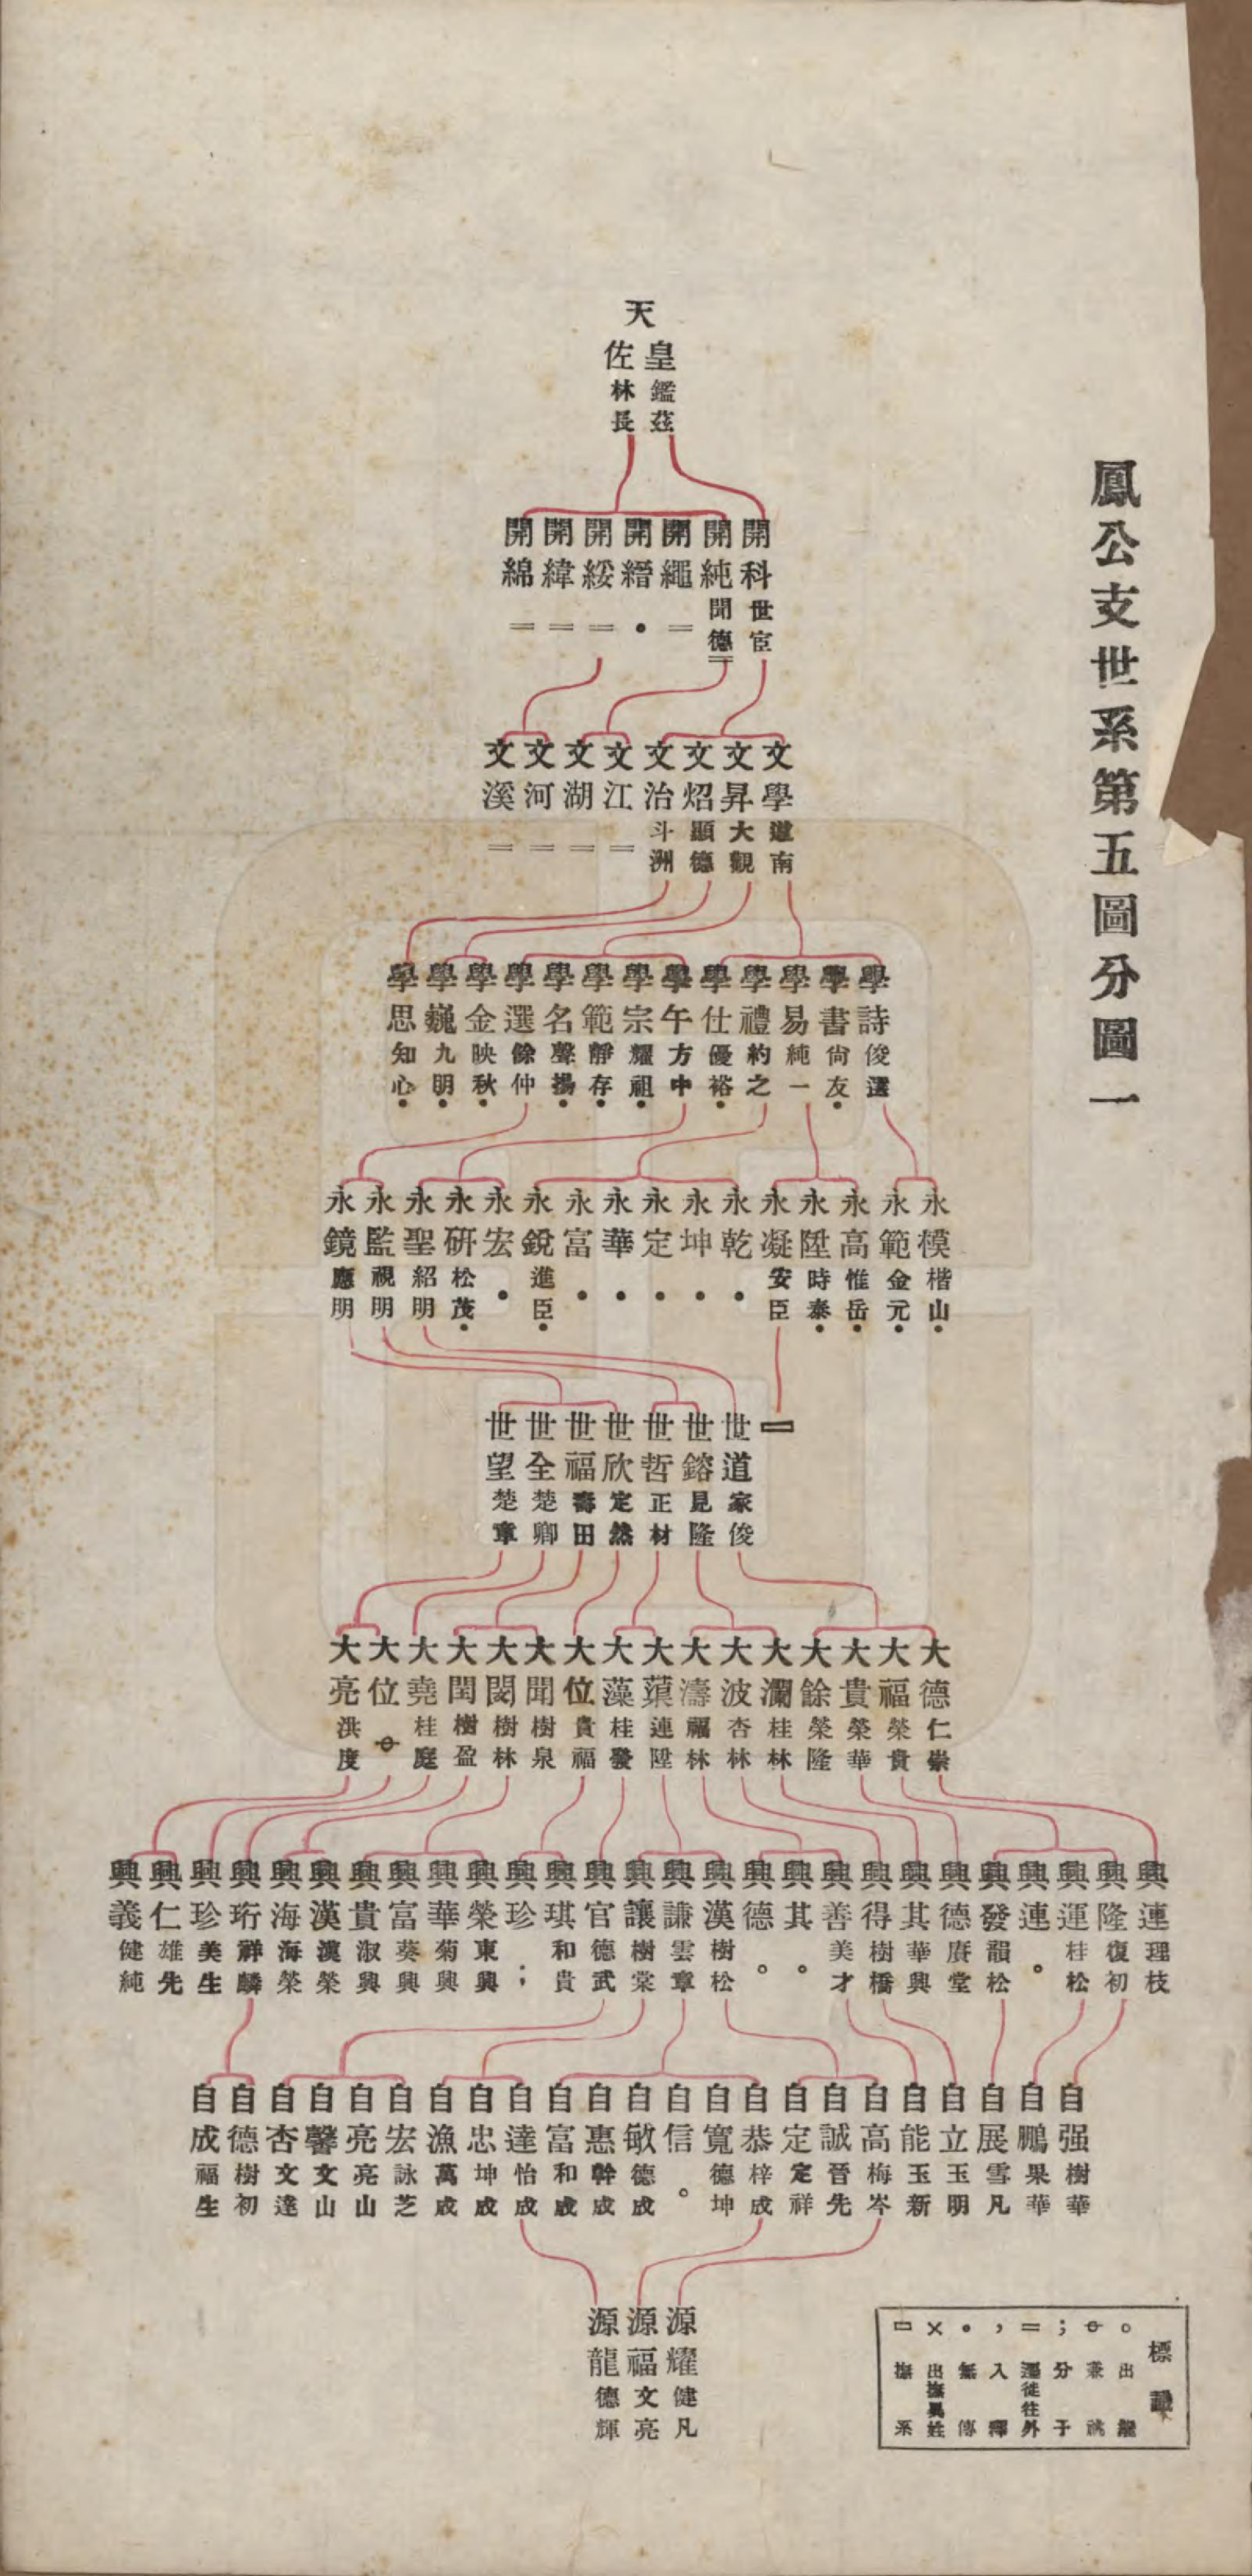 鳳公支世系第五圖分圖一
天
皇 鑑茲
佐 林長
開科 世宦
開純 聞德 =
開繩 =
開縉 •
開綏 =
開緯 =
開綿 =
文學 道南
文昇 大觀
文炤 顯德
文治 斗洲
文江 =
文湖 =
文河 =
文溪 =
學詩 俊選
學書 尙友 •
學易 純一
學禮 約之
學仕 優裕 •
學午 方中
學宗 耀祖 •
學範 靜存 •
學名 聲揚 •
學選 餘仲
學金 映秋 •
學巍 九明 •
學思 知心 •
永模 楷山 •
永範 金元 •
永高 惟岳 •
永陞 時泰 •
永凝 安臣
永乾 •
永坤 •
永定 •
永華 •
永富 •
永銳 進臣 •
永宏 •
永研 松茂 •
永聖 紹明
永監 視明
永鏡 應明
世道 家俊
世鎔 見隆
世哲 正材
世欣 定然
世福 壽田
世全 楚卿
世望 楚章
大德 仁崇
大福 榮貴
大貴 榮華
大餘 榮隆
大瀾 桂林
大波 杏林
大濤 福林
大蕖 連陞
大藻 桂發
大位 貴福
大聞 樹泉
大閔 樹林
大閏 樹盈
大堯 桂庭
大位
大亮 洪度
興連 理枝
興隆 復初
興運 桂松
興連 。
興發 韻松
興德 賡堂
興其 華興
興得 樹橋
興善 美才
興其 。
興德 。
興漢 樹松
興謙 雲章
興讓 樹棠
興官 德武
興琪 和貴
興珍 ;
興榮 東興
興華 菊興
興富 葵興
興貴 淑興
興漢 漢榮
興海 海榮
興珩 祥麟
興珍 美生
興仁 雄先
興義 健純
自强 樹華
自鵬 果華
自展 雪凡
自立 玉明
自能 玉新
自高 梅岑
自誠 晉先
自定 定祥
自恭 梓成
自寬 德坤
自信 。
自敏 德成
自惠 幹成
自富 和成
自達 怡成
自忠 坤成
自漁 萬成
自宏 詠芝
自亮 亮山
自馨 文山
自杏 文達
自德 樹初
自成 福生
源耀 健凡
源福 文亮
源龍 德輝
標識
。 出繼
兼祧
; 分子
= 遷徙往外
, 入釋
• 無傳
× 出撫異姓
撫系